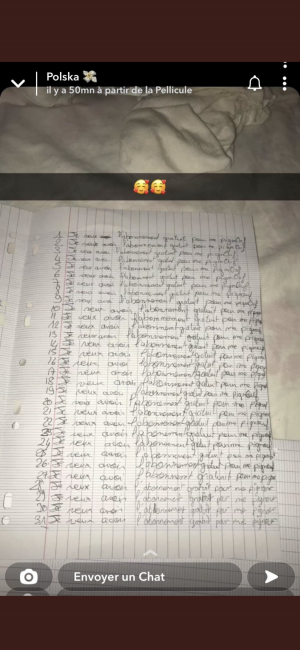 Polska 💸
il y a 50mn à partir de la Pellicule
🥰🥰
1 Je veux l'abonnement gratuit pour me
2 Je veux avoir l'abonnement gratuit pour me
3 Je veux avoir l'abonnement gratuit pour me
4 Je veux avoir l'abonnement gratuit pour me
5 Je veux avoir l'abonnement gratuit pour me
6 Je veux avoir l'abonnement gratuit pour me
7 Je veux avoir l'abonnement gratuit pour me
8 Je veux avoir l'abonnement gratuit pour me
9 Je veux avoir l'abonnement gratuit pour me
10 Je veux avoir l'abonnement gratuit pour me
11 Je veux avoir l'abonnement gratuit pour me
12 Je veux avoir l'abonnement gratuit pour me
13 Je veux avoir l'abonnement gratuit pour me
14 Je veux avoir l'abonnement gratuit pour me
15 Je veux avoir l'abonnement gratuit pour me
16 Je veux avoir l'abonnement gratuit pour me
17 Je veux avoir l'abonnement gratuit pour me
18 Je veux avoir l'abonnement gratuit pour me
19 Je veux avoir l'abonnement gratuit pour me
20 Je veux avoir l'abonnement gratuit pour me
21 Je veux avoir l'abonnement gratuit pour me
22 Je veux avoir l'abonnement gratuit pour me
23 Je veux avoir l'abonnement gratuit pour me
24 Je veux avoir l'abonnement gratuit pour me
25 Je veux avoir l'abonnement gratuit pour me
26 Je veux avoir l'abonnement gratuit pour me
27 Je veux avoir l'abonnement gratuit pour me
28 Je veux avoir l'abonnement gratuit me
29 Je veux avoir l'abonnement gratuit me
30 Je veux avoir l'abonnement gratuit me
31 Je veux avoir l'abonnement gratuit me
Envoyer un Chat